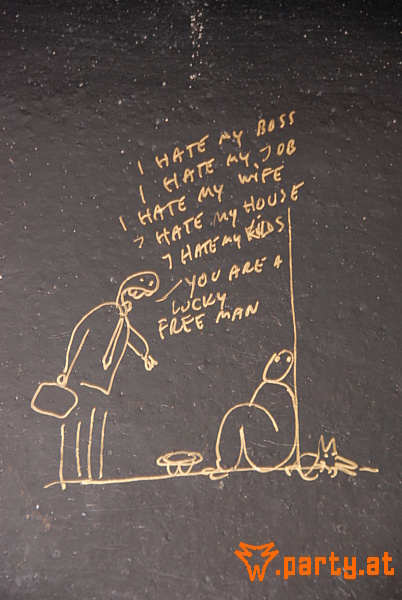 I HATE MY BOSS
I HATE MY JOB
I HATE MY WIFE
I HATE MY HOUSE
I HATE MY KIDS
YOU ARE A
LUCKY
FREE MAN
.party.at